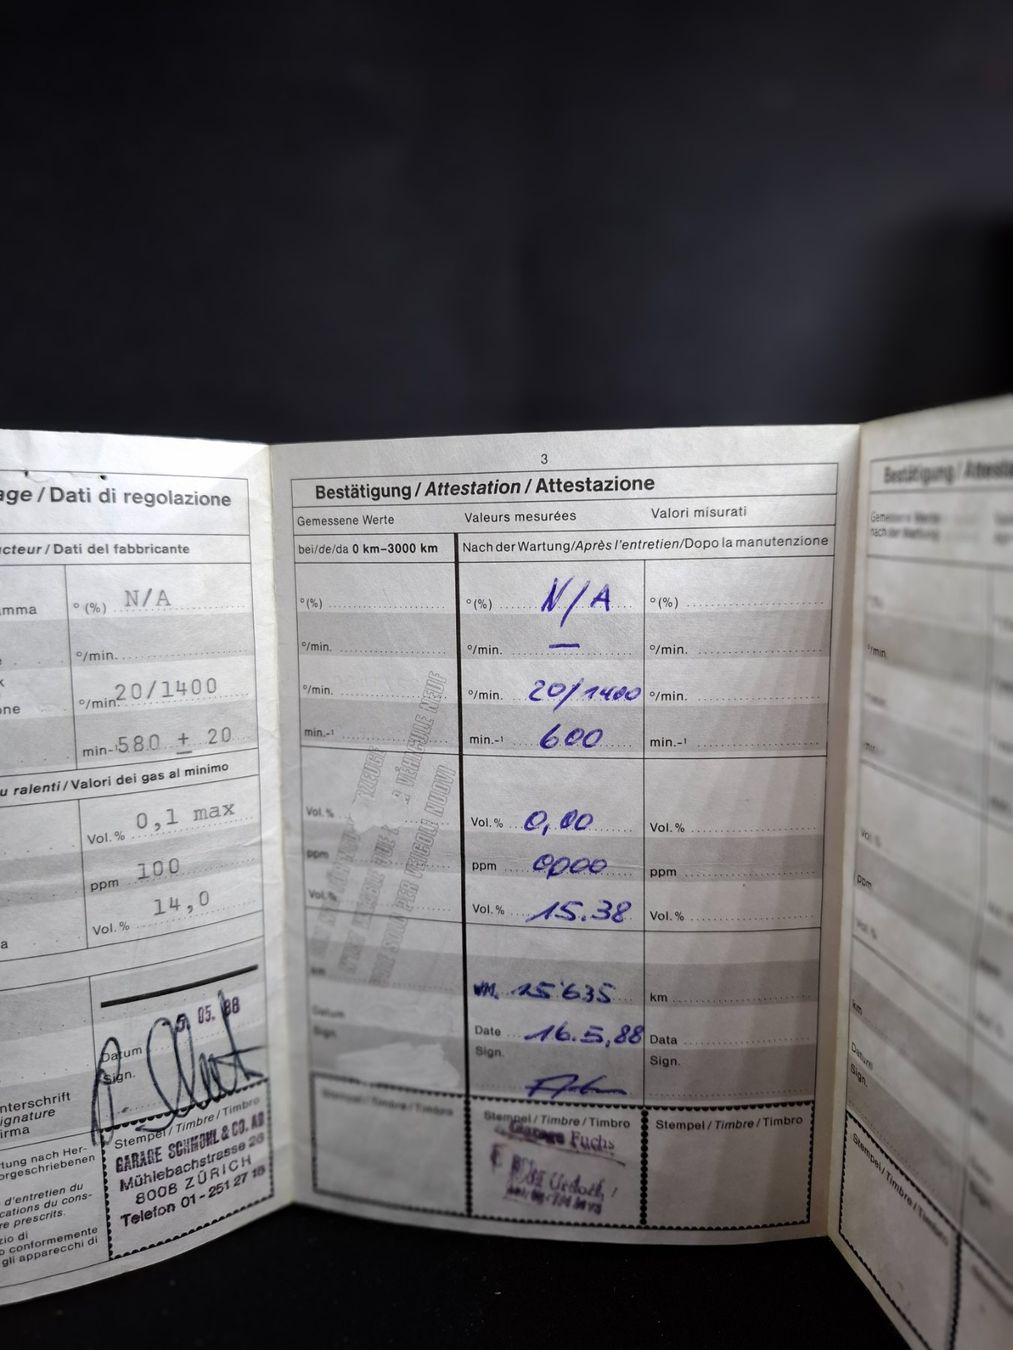 age / Dati di regolazione
acteur / Dati del fabbricante
amma
°(%) N/A
°/min.
one
°/min. 20/1400
min-¹ 580 ± 20
u ralenti / Valori dei gas al minimo
Vol. % 0,1 max
ppm 100
Vol. % 14,0
a
05. 88
Datum
Sign.
nterschrift
ignature
irma
Stempel / Timbre / Timbro
GARAGE SCHMOHL & CO. AG
Mühlebachstrasse 26
8008 ZÜRICH
Telefon 01-251 27 16
tung nach Her-
orgeschriebenen
d'entretien du
cations du cons-
re prescrits.
zio di
o conformemente
gli apparecchi di
3
Bestätigung / Attestation / Attestazione
Gemessene Werte Valeurs mesurées Valori misurati
bei/de/da 0 km–3000 km Nach der Wartung/Après l'entretien/Dopo la manutenzione
°(%) °(%) N/A °(%)
°/min. °/min. — °/min.
°/min. °/min. 20/1400 °/min.
min.-¹ min.-¹ 600 min.-¹
Vol. % Vol. % 0,00 Vol. %
ppm ppm 0000 ppm
Vol. % Vol. % 15.38 Vol. %
km km 15'635 km
Datum Date 16.5,88 Data
Sign. Sign. Sign.
Stempel / Timbre / Timbro Stempel / Timbre / Timbro Stempel / Timbre / Timbro
VÉHICULE NEUF
PER VEICOLI NUOVI
Garage Fuchs
Bestätigung / Attesta
Gemessene Werte
nach der Wartung
°/min.
Vol. %
ppm
Vol. %
km
Datum
Sign.
Stempel / Timbre / Timbro